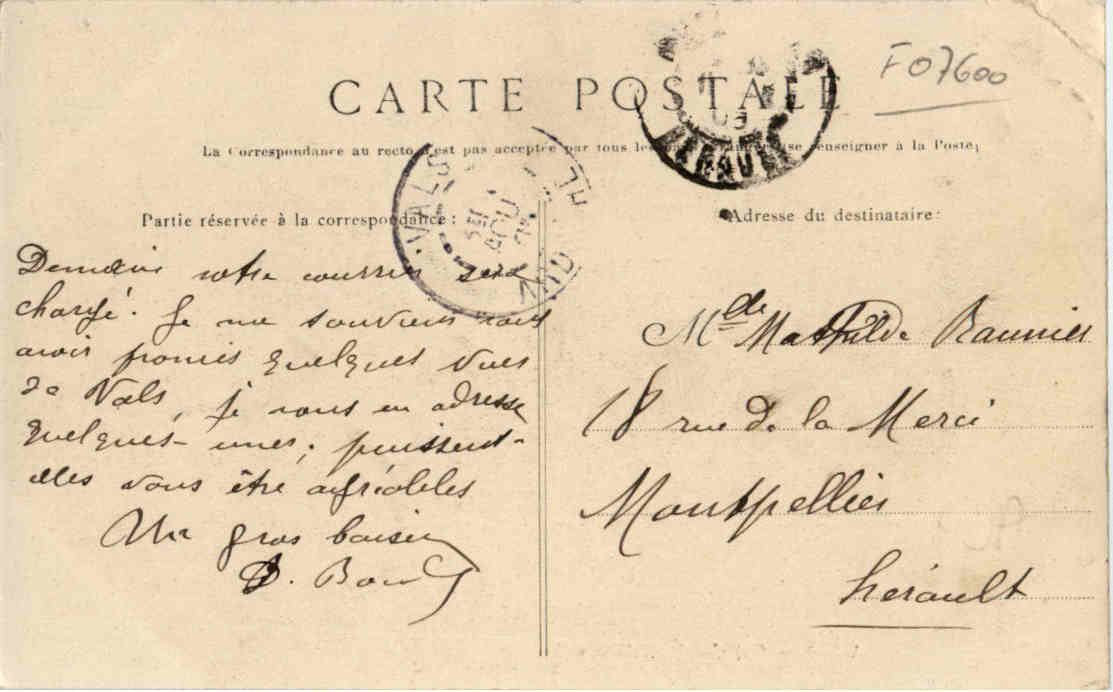 F07600
CARTE POSTALE
La Correspondance au recto n'est pas acceptée par tous les se renseigner à la Poste;
Partie réservée à la correspondance:
Adresse du destinataire:
VALS
31
AOUT
Demain votre courrier sera
chargé. Je me souviens vous
avoir promis quelques vues
de Vals, je vous en adresse
quelques-unes; puissent-
elles vous être agréables
Un gros baiser
Mlle Mathilde Baumier
18 rue de la Merci
Montpellier
Hérault